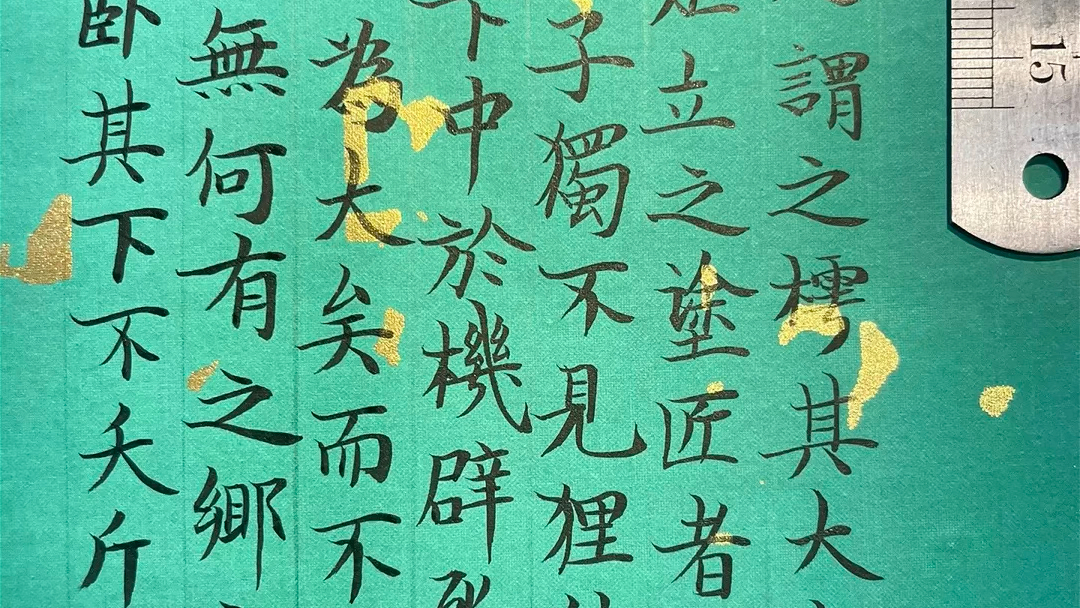 謂之樗其大
立之塗匠者
子獨不見狸
下中於機辟死
為大矣而不
無何有之鄉
臥其下不夭斤
15